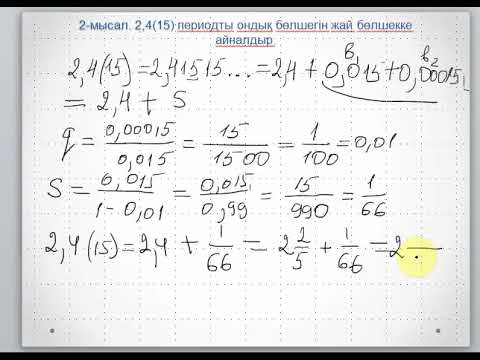 2-мысал. 2,4(15) периодты ондық бөлшегін жай бөлшекке
айналдыр.
b₁ b₂
2,4(15)=2,41515...=2,4+0,015+0,00015
= 2,4 + S
q = 0,00015/0,015 = 15/1500 = 1/100 = 0,01
S = 0,015/1-0,01 = 0,015/0,99 = 15/990 = 1/66
2,4(15)=2,4 + 1/66 = 2 2/5 + 1/66 = 2